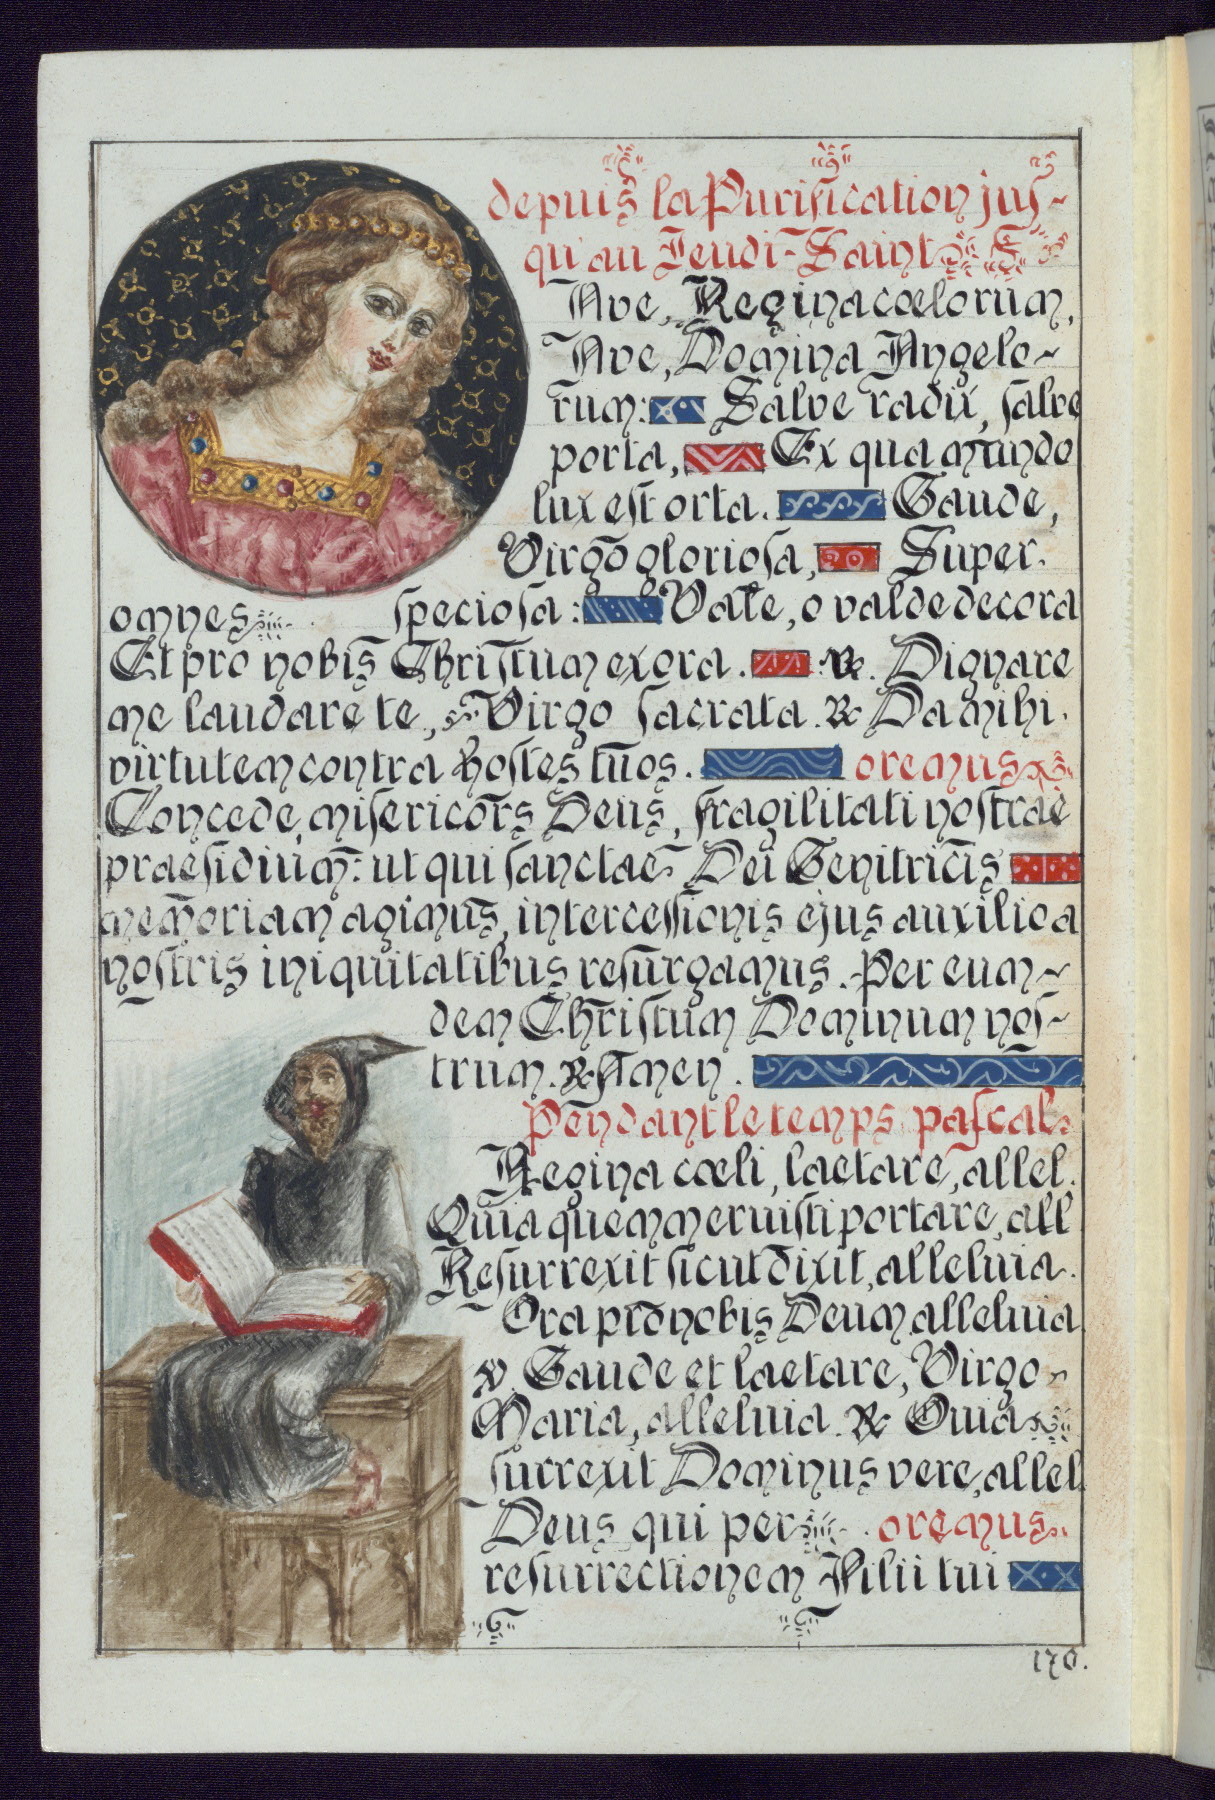 depuis la Purification jus-
qu'au Jeudi-Saint
Ave, Regina cœlorum,
Ave, Domina Angelo-
rum: Salve radix, salve
porta, Ex qua mundo
lux est orta. Gaude,
Virgo gloriosa, Super
omnes speciosa: Vale, o valde decora
Et pro nobis Christum exora. ℟. Dignare
me laudare te, Virgo sacrata. ℟ Da mihi
virtutem contra hostes tuos. oremus
Concede, misericors Deus, fragilitati nostrae
praesidium: ut qui sanctae Dei Genitricis
memoriam agimus, intercessionis ejus auxilio a
nostris iniquitatibus resurgamus. Per eum-
dem Christum Dominum nos-
trum. ℟ Amen.
Pendant le temps pascal.
Regina cœli, laetare, allel.
Quia quem meruisti portare, all
Resurrexit sicut dixit, alleluia.
Ora pro nobis Deum alleluia
℣. Gaude et laetare, Virgo
Maria, alleluia. ℟ Quia
surrexit Dominus vere, allel
Deus qui per oremus
resurrectionem Filii tui
170.